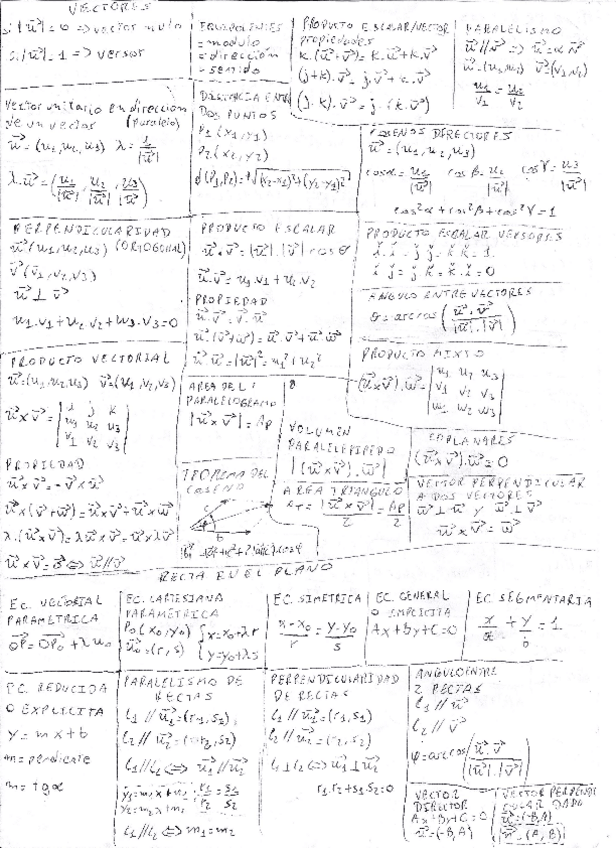 VECTORES
si |u⃗| = 0 => vector nulo
si |u⃗| = 1 => versor
EQUIPOLENTES
= modulo
= dirección
= sentido
PRODUCTO ESCALAR/VECTOR
propiedades
k.(u⃗+v⃗) = k.u⃗ + k.v⃗
(j+k).v⃗ = j.v⃗ + k.v⃗
(j.k).v⃗ = j.(k.v⃗)
PARALELISMO
u⃗ // v⃗ => u⃗ = α v⃗
u⃗ = (u1,u2) v⃗(v1,v2)
u1/v1 = u2/v2
Vector unitario en dirección
de un vector (paralelo)
u⃗ = (u1,u2,u3) λ = 1/|u⃗|
λ.u⃗ = (u1/|u⃗|, u2/|u⃗|, u3/|u⃗|)
DISTANCIA ENTRE
DOS PUNTOS
P1(x1,y1)
P2(x2,y2)
d(P1,P2) = √(x2-x1)²+(y2-y1)²
COSENOS DIRECTORES
u⃗ = (u1,u2,u3)
cosα = u1/|u⃗| cosβ = u2/|u⃗| cosγ = u3/|u⃗|
cos²α + cos²β + cos²γ = 1
PERPENDICULARIDAD
u⃗(u1,u2,u3) (ORTOGONAL)
v⃗(v1,v2,v3)
u⃗ ⊥ v⃗
u1.v1 + u2.v2 + u3.v3 = 0
PRODUCTO ESCALAR
u⃗.v⃗ = |u⃗|.|v⃗| cos θ
u⃗.v⃗ = u1.v1 + u2.v2
PROPIEDAD
u⃗.v⃗ = v⃗.u⃗
u⃗.(v⃗+w⃗) = u⃗.v⃗ + u⃗.w⃗
u⃗.u⃗ = |u⃗|² = u1² u2²
PRODUCTO ESCALAR VERSORES
i.i = j.j = k.k = 1
i.j = j.k = k.i = 0
ANGULO ENTRE VECTORES
θ = arc cos (u⃗.v⃗ / |u⃗|.|v⃗|)
PRODUCTO VECTORIAL
u⃗ = (u1,u2,u3) v⃗ = (v1,v2,v3)
u⃗ x v⃗ = | i j k |
| u1 u2 u3 |
| v1 v2 v3 |
PROPIEDAD
u⃗ x v⃗ = - v⃗ x u⃗
u⃗ x (v⃗+w⃗) = u⃗ x v⃗ + u⃗ x w⃗
λ.(u⃗ x v⃗) = λu⃗ x v⃗ = u⃗ x λv⃗
u⃗ x v⃗ = 0⃗ <=> u⃗ // v⃗
AREA DEL
PARALELOGRAMO
|u⃗ x v⃗| = Ap
PRODUCTO MIXTO
(u⃗ x v⃗).w⃗ = | u1 u2 u3 |
| v1 v2 v3 |
| w1 w2 w3 |
VOLUMEN
PARALELEPIPEDO
|(u⃗ x v⃗).w⃗|
COPLANARES
(u⃗ x v⃗).w⃗ = 0
TEOREMA DEL
COSENO
c
b
AREA TRIANGULO
AT = |u⃗ x v⃗|/2 = Ap/2
VECTOR PERPENDICULAR
A DOS VECTORES
w⃗ ⊥ u⃗ y w⃗ ⊥ v⃗
u⃗ x v⃗ = w⃗
RECTA EN EL PLANO
EC. VECTORIAL
PARAMETRICA
OP⃗ = OP0⃗ + λ u0
EC. CARTESIANA
PARAMETRICA
P0(x0,y0) { x = x0 + λr
u⃗ = (r,s) { y = y0 + λs
EC. SIMETRICA
x-x0/r = y-y0/s
EC. GENERAL
O IMPLICITA
Ax+By+C=0
EC. SEGMENTARIA
x/a + y/b = 1
EC. REDUCIDA
O EXPLICITA
y = mx + b
m = pendiente
m = tg α
PARALELISMO DE
RECTAS
L1 // u1⃗ = (r1,s1)
L2 // u2⃗ = (r2,s2)
L1 // L2 <=> u1⃗ // u2⃗
r1/r2 = s1/s2
L1 // L2 <=> m1 = m2
PERPENDICULARIDAD
DE RECTAS
L1 // u1⃗ = (r1,s1)
L2 // u2⃗ = (r2,s2)
L1 ⊥ L2 <=> u1⃗ ⊥ u2⃗
r1.r2 + s1.s2 = 0
ANGULO ENTRE
2 RECTAS
L1 // u⃗
L2 // v⃗
φ = arc cos (u⃗.v⃗ / |u⃗|.|v⃗|)
VECTOR
DIRECTOR
Ax+By+C=0
u⃗ = (-B,A)
VECTOR PERPENDI
CULAR DADO
u⃗ = (-B,A)
n⃗ = (A,B)